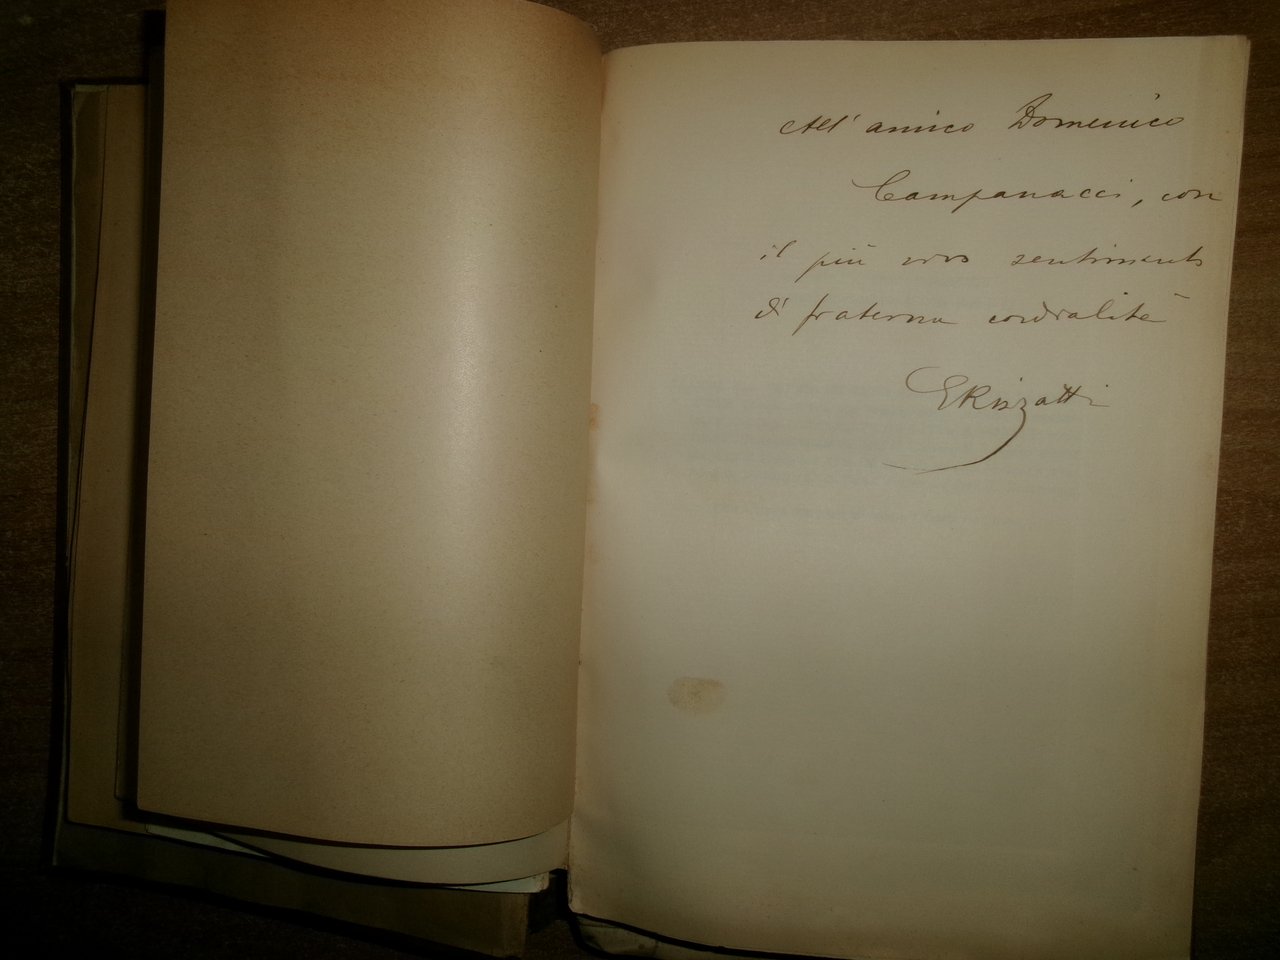 All' amico Domenico
Campanacci, con
il più vivo sentimento
di fraterna cordialità
ERizzatti